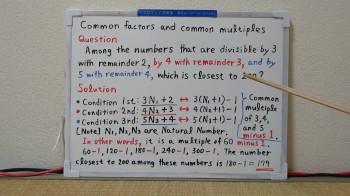 Common factors and common multiples
Question
Among the numbers that are divisible by 3
with remainder 2, by 4 with remainder 3, and by
5 with remainder 4, which is closest to 200?
Solution
• Condition 1st: 3N₁+2 ↔ 3(N₁+1)-1
• Condition 2nd: 4N₂+3 ↔ 4(N₂+1)-1
• Condition 3rd: 5N₃+4 ↔ 5(N₃+1)-1
Common
multiples
of 3, 4,
and 5
minus 1.
[Note] N₁, N₂, N₃ are Natural Number.
In other words, it is a multiple of 60 minus 1.
60-1, 120-1, 180-1, 240-1, 300-1. The number
closest to 200 among these numbers is 180-1=179